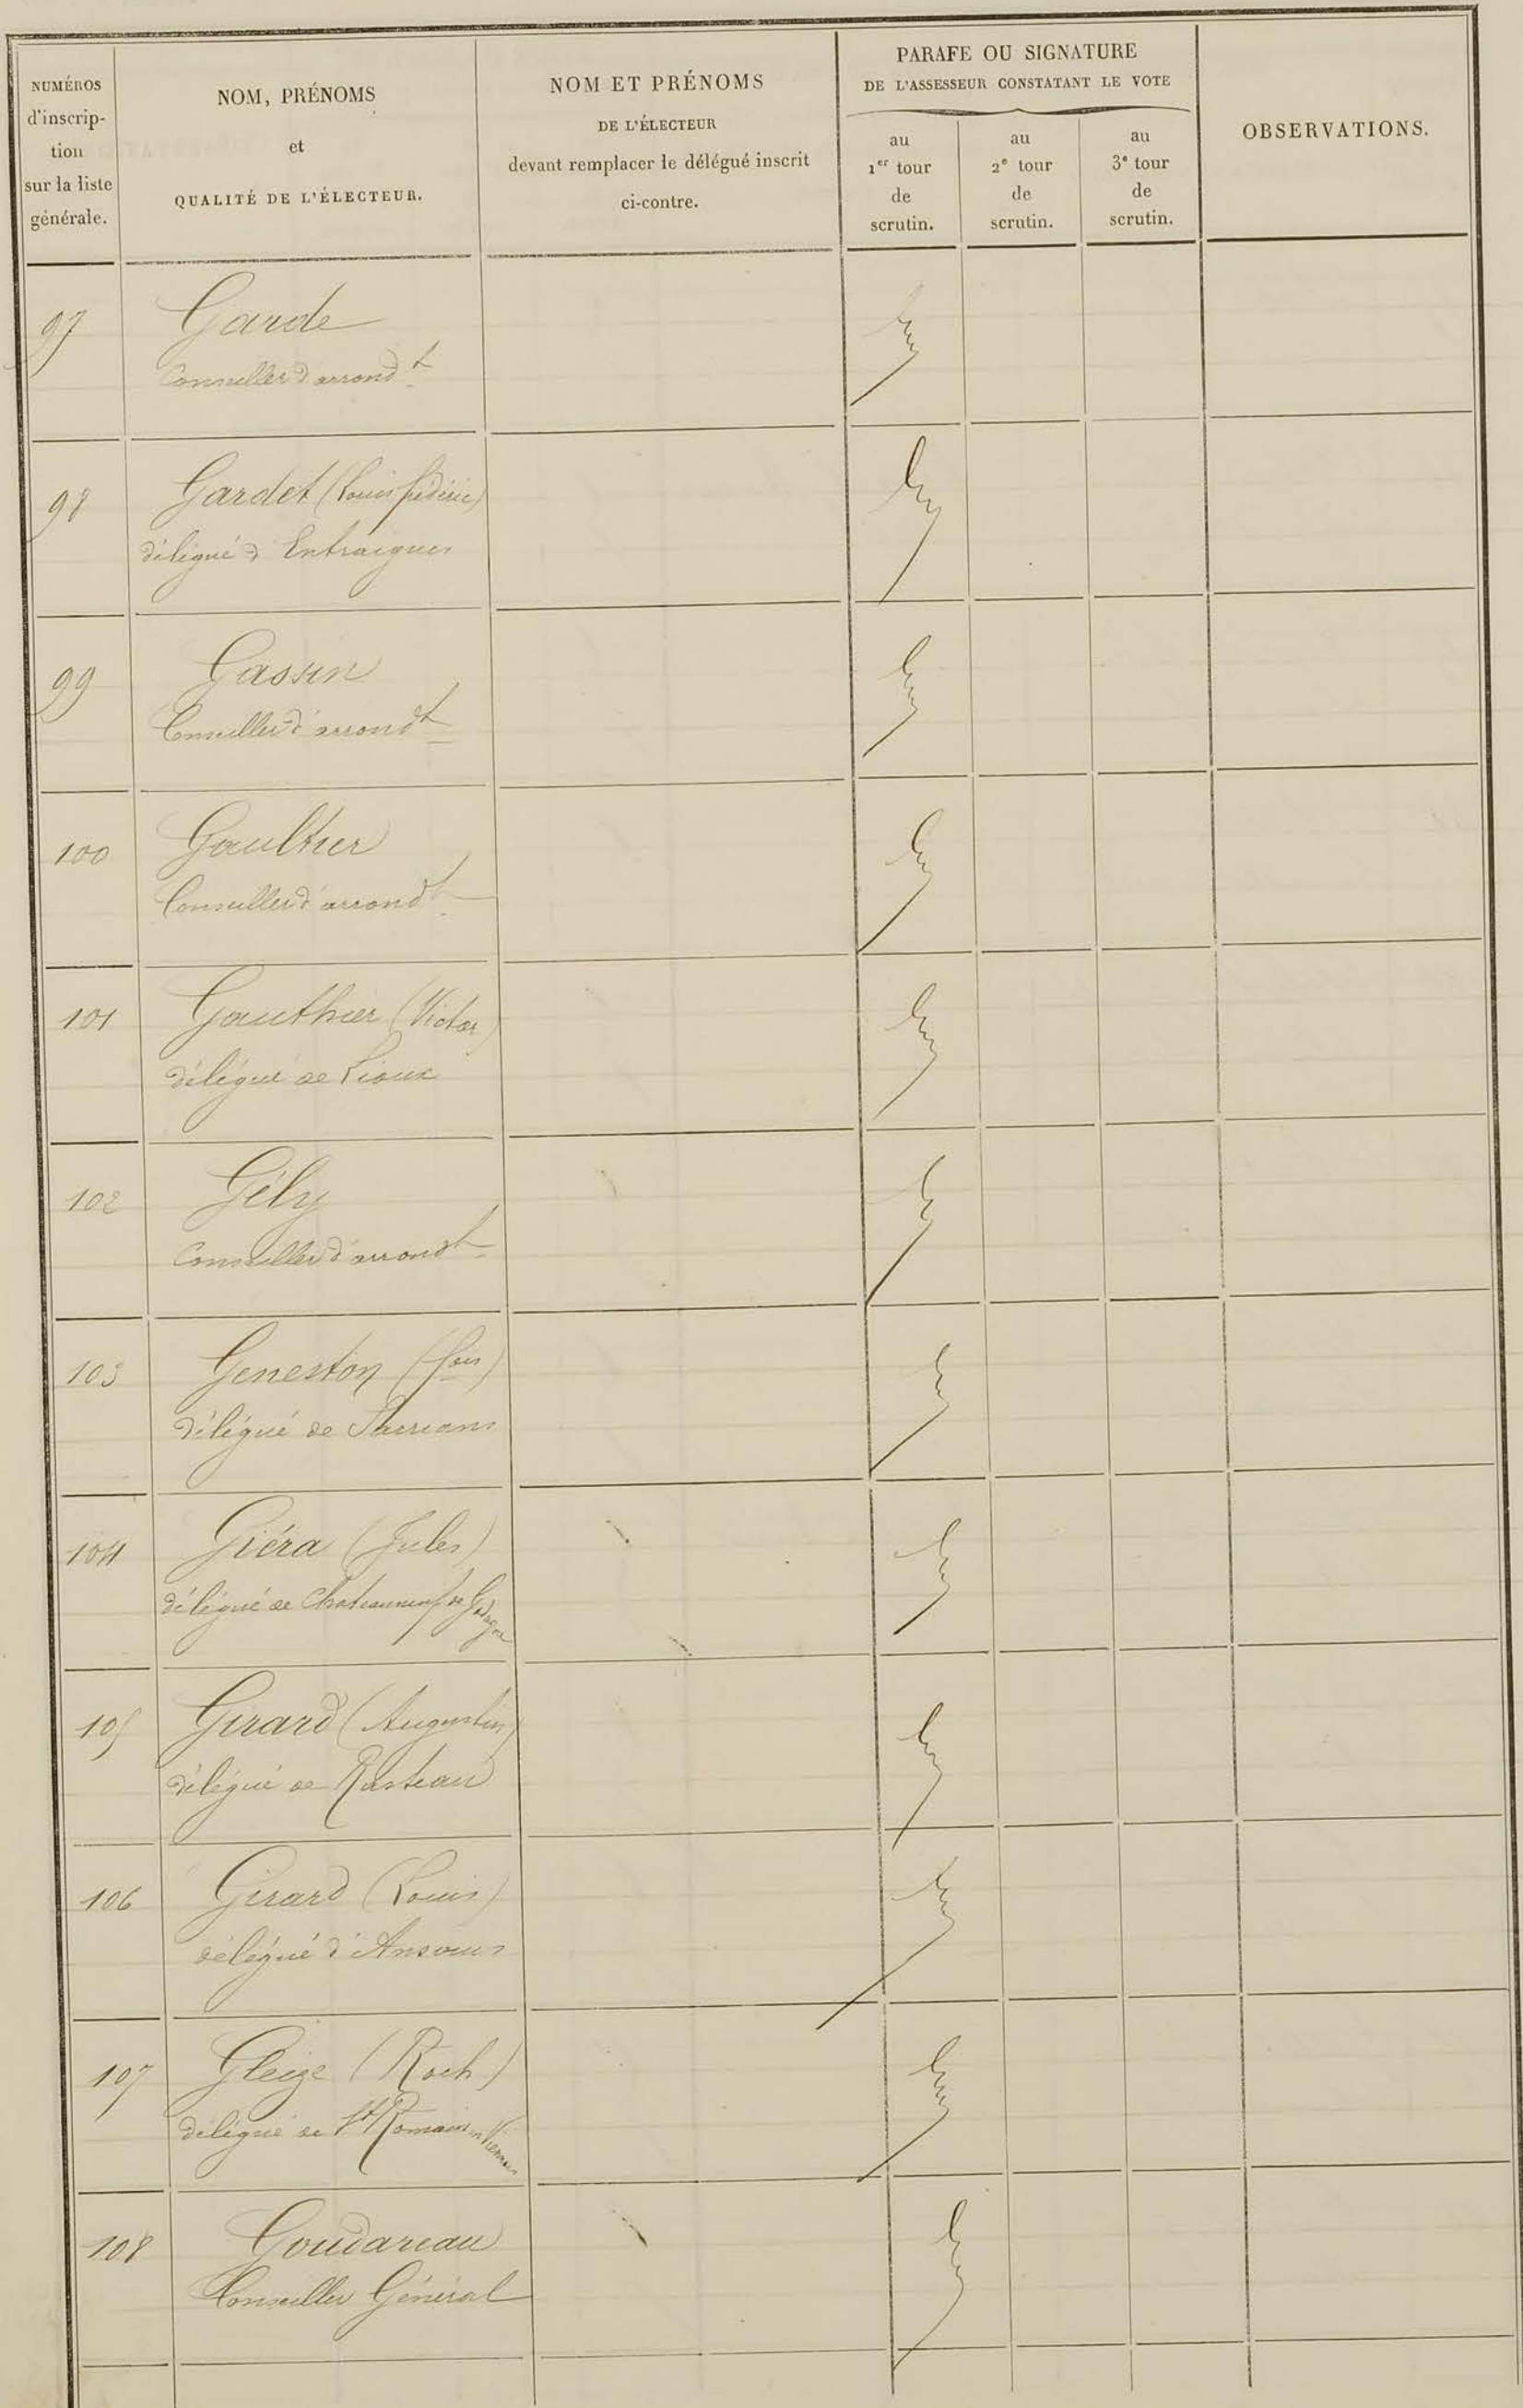 NUMÉROS
d'inscrip-
tion
sur la liste
générale.
NOM, PRÉNOMS
et
QUALITÉ DE L'ÉLECTEUR.
NOM ET PRÉNOMS
DE L'ÉLECTEUR
devant remplacer le délégué inscrit
ci-contre.
PARAFE OU SIGNATURE
DE L'ASSESSEUR CONSTATANT LE VOTE
au
1er tour
de
scrutin.
au
2e tour
de
scrutin.
au
3e tour
de
scrutin.
OBSERVATIONS.
97 Garde
Conseiller d'arrondt
98 Gardet (Louis frédéric)
délégué d'Entraigues
99 Gassin
Conseiller d'arrondt
100 Gaultier
Conseiller d'arrondt
101 Gauthier (Victor)
délégué de Lioux
102 Gély
Conseiller d'arrondt
103 Geneston (fois)
délégué de Sarrians
104 Giéra (Jules)
délégué de Chateauneuf de Gadagne
105 Girard (Augustin)
délégué de Rasteau
106 Girard (Louis)
délégué d'Ansouis
107 Gleize (Roch)
délégué de St Romain en Viennois
108 Goudareau
Conseiller Général